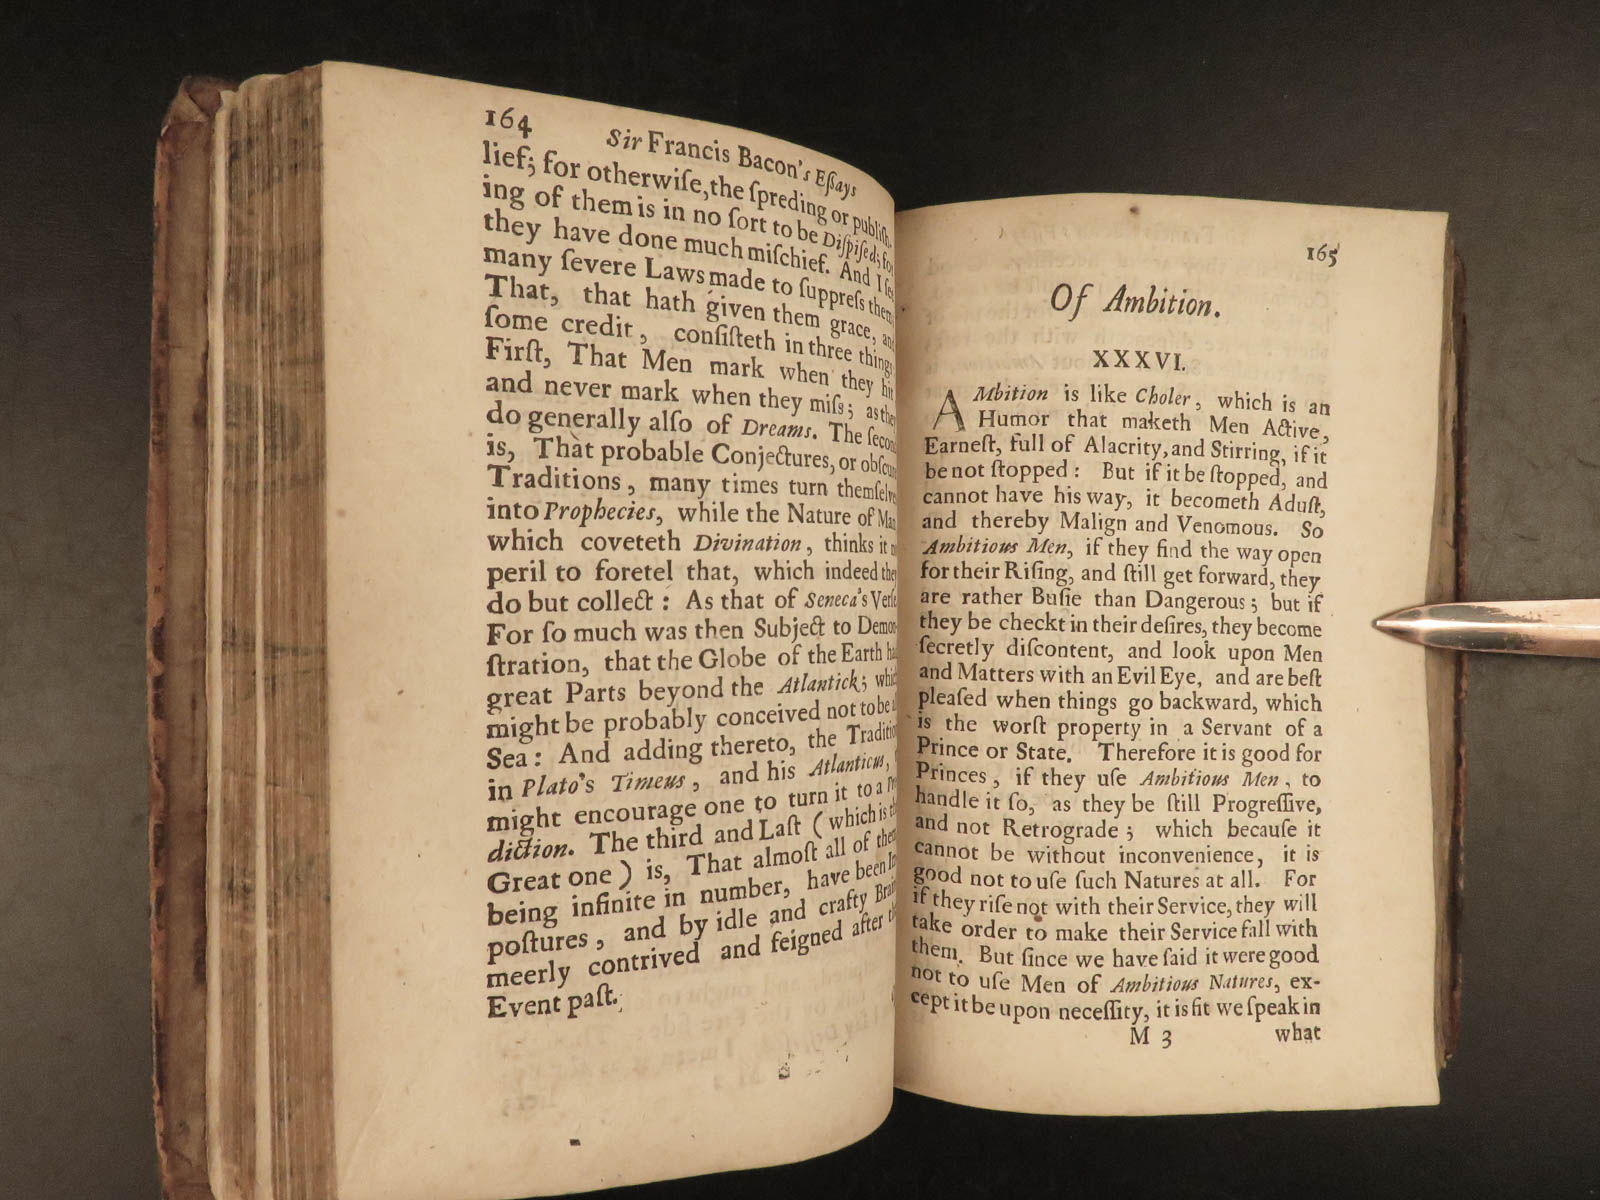 164
Sir Francis Bacon's Eſſays
lief; for otherwiſe, the ſpreding or publiſh-
ing of them is in no ſort to be Diſpiſed; for
they have done much miſchief. And I ſee
many ſevere Laws made to ſuppreſs them.
That, that hath given them grace, and
ſome credit, conſiſteth in three things.
Firſt, That Men mark when they hit,
and never mark when they miſs; as they
do generally alſo of Dreams. The ſecond
is, That probable Conjectures, or obſcure
Traditions, many times turn themſelves
into Prophecies, while the Nature of Man,
which coveteth Divination, thinks it no
peril to foretel that, which indeed they
do but collect: As that of Seneca's Verſe
For ſo much was then Subject to Demon-
ſtration, that the Globe of the Earth had
great Parts beyond the Atlantick; which
might be probably conceived not to be all
Sea: And adding thereto, the Tradition
in Plato's Timeus, and his Atlanticus,
might encourage one to turn it to a Pre-
diction. The third and Laſt (which is the
Great one) is, That almoſt all of them
being infinite in number, have been Im-
poſtures, and by idle and crafty Brains
meerly contrived and feigned after the
Event paſt.
165
Of Ambition.
XXXVI.
AMbition is like Choler, which is an
Humor that maketh Men Active,
Earneſt, full of Alacrity, and Stirring, if it
be not ſtopped: But if it be ſtopped, and
cannot have his way, it becometh Aduſt,
and thereby Malign and Venomous. So
Ambitious Men, if they find the way open
for their Riſing, and ſtill get forward, they
are rather Buſie than Dangerous; but if
they be checkt in their deſires, they become
ſecretly diſcontent, and look upon Men
and Matters with an Evil Eye, and are beſt
pleaſed when things go backward, which
is the worſt property in a Servant of a
Prince or State. Therefore it is good for
Princes, if they uſe Ambitious Men, to
handle it ſo, as they be ſtill Progreſſive,
and not Retrograde; which becauſe it
cannot be without inconvenience, it is
good not to uſe ſuch Natures at all. For
if they riſe not with their Service, they will
take order to make their Service fall with
them. But ſince we have ſaid it were good
not to uſe Men of Ambitious Natures, ex-
cept it be upon neceſſity, it is fit we ſpeak in
M 3 what